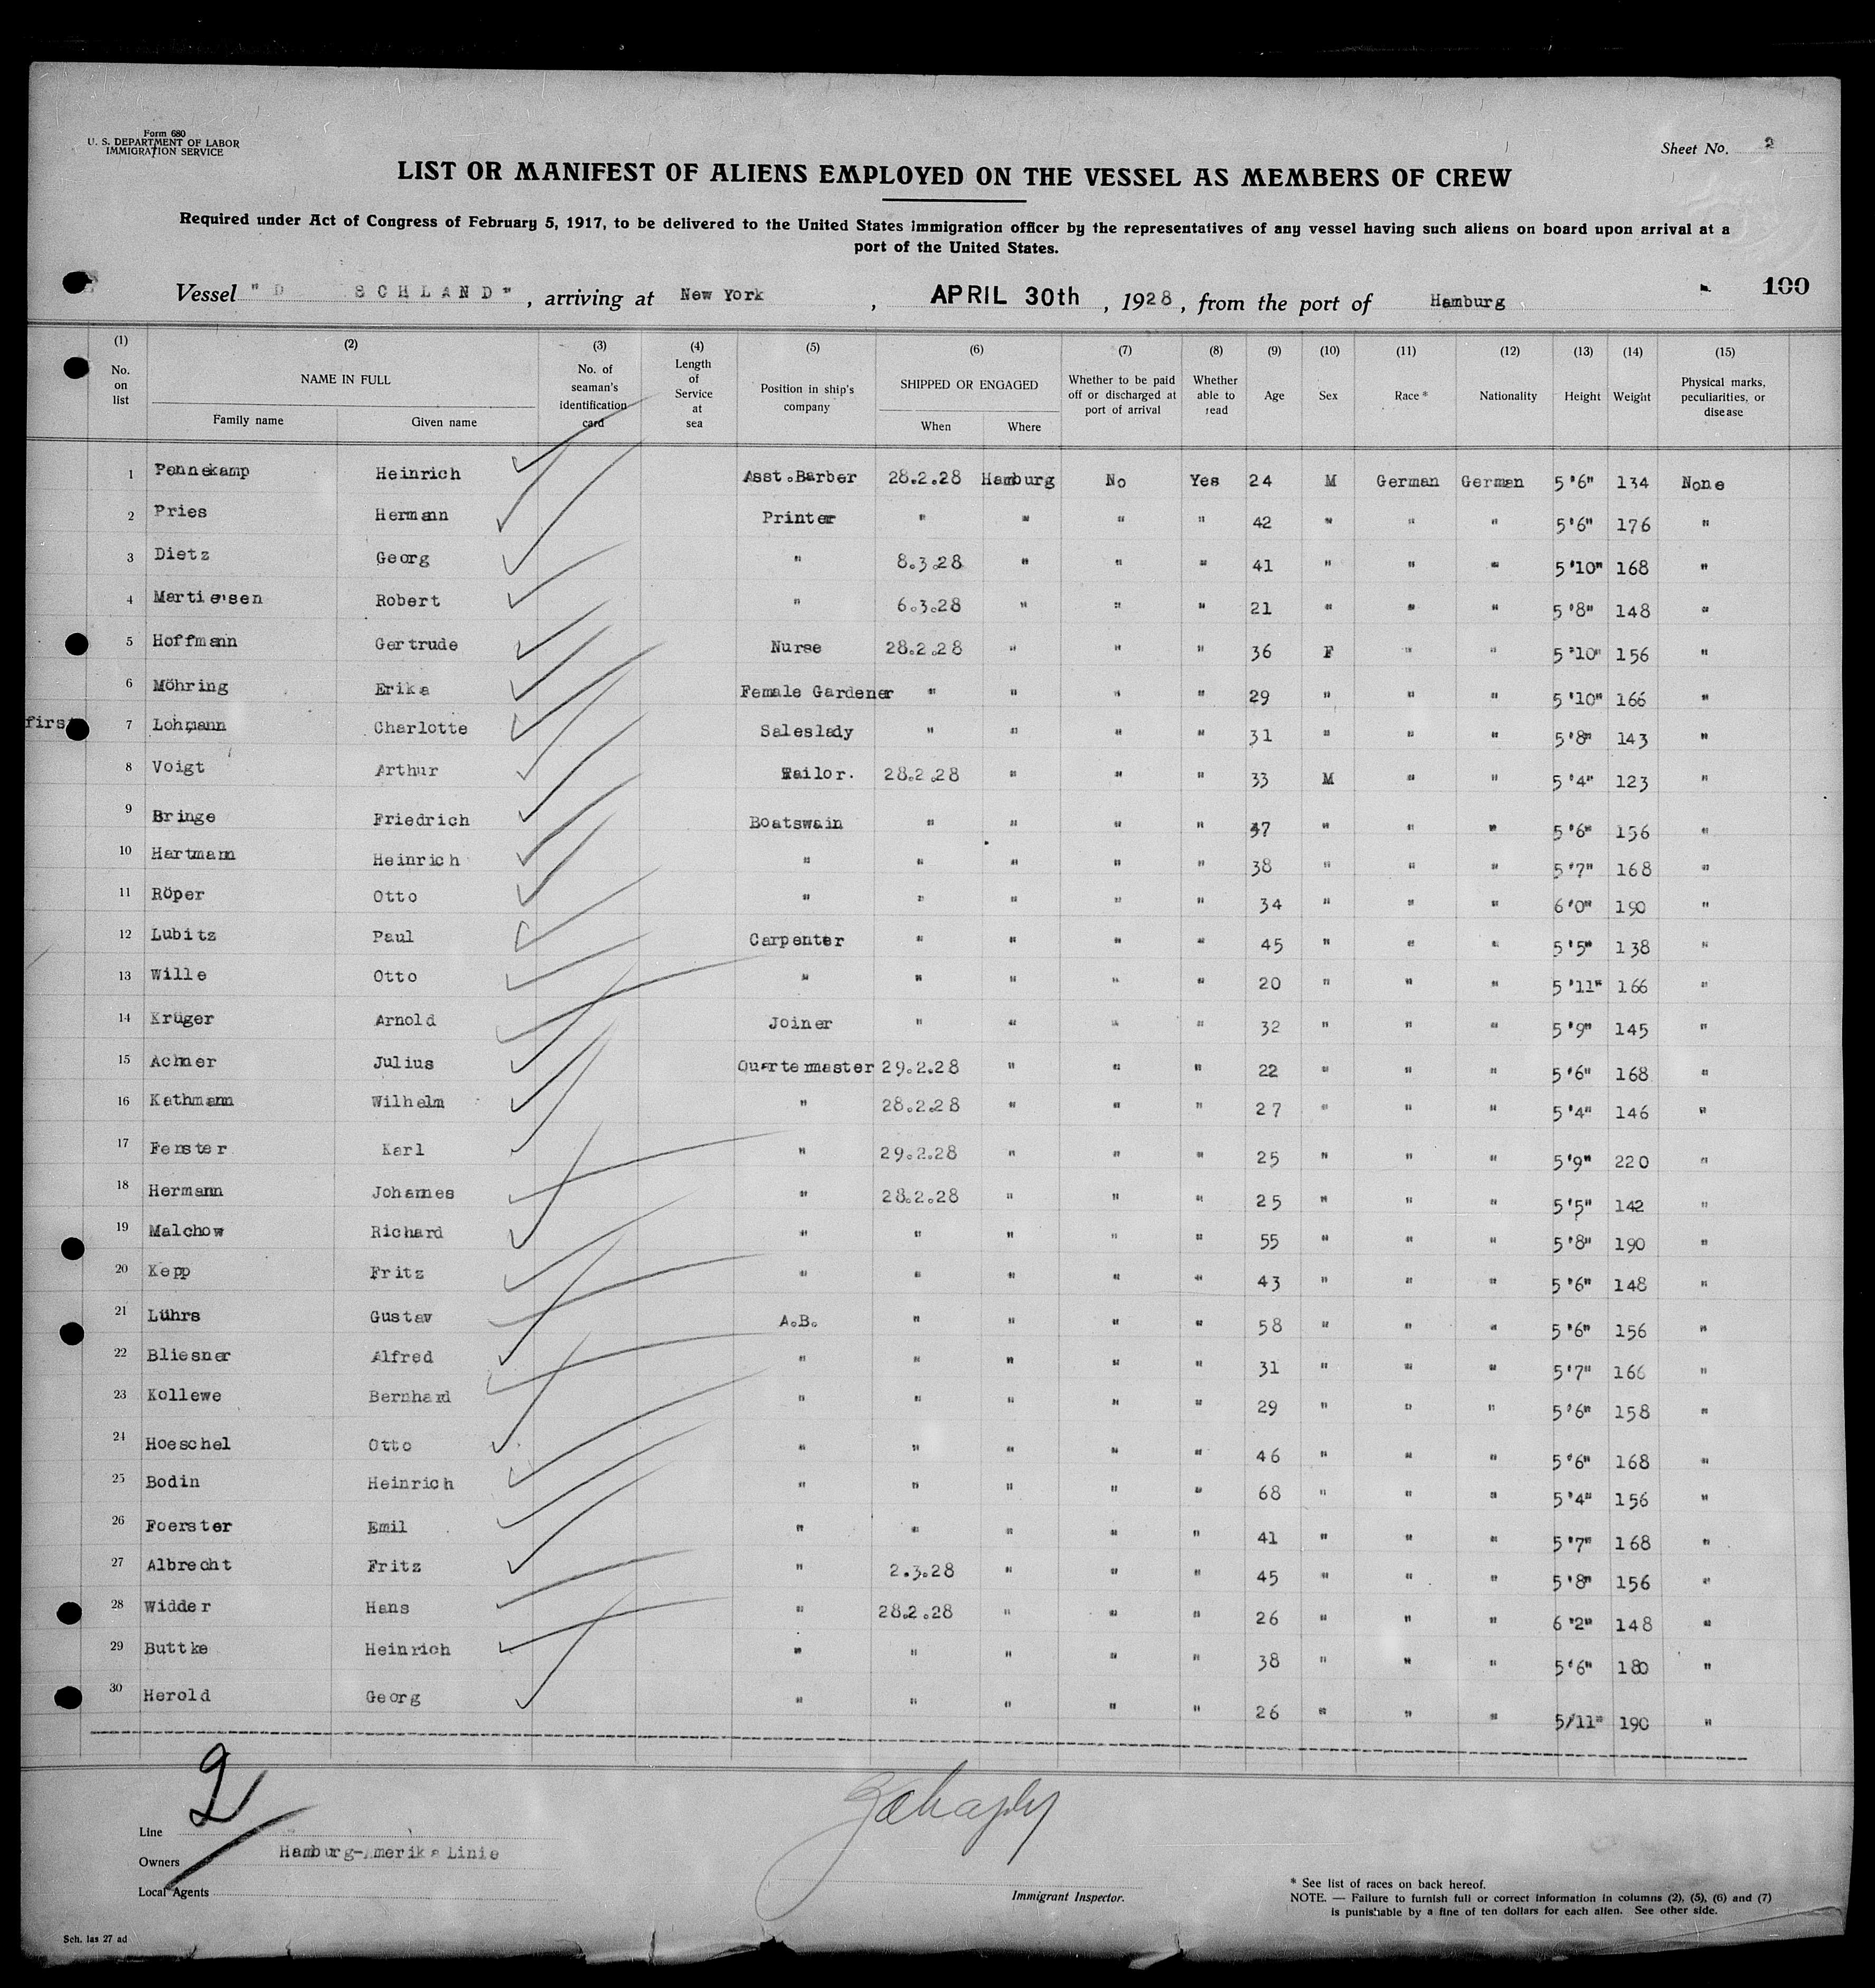 Form 680
U. S. DEPARTMENT OF LABOR
IMMIGRATION SERVICE
Sheet No. 2
LIST OR MANIFEST OF ALIENS EMPLOYED ON THE VESSEL AS MEMBERS OF CREW
Required under Act of Congress of February 5, 1917, to be delivered to the United States Immigration officer by the representatives of any vessel having such aliens on board upon arrival at a
port of the United States.
Vessel " D SCHLAND" , arriving at New York , APRIL 30th , 1928 , from the port of Hamburg 100
(1) (2) (3) (4) (5) (6) (7) (8) (9) (10) (11) (12) (13) (14) (15)
No. on list NAME IN FULL Family name Given name No. of seaman's identification card Length of Service at sea Position in ship's company SHIPPED OR ENGAGED When Where Whether to be paid off or discharged at port of arrival Whether able to read Age Sex Race * Nationality Height Weight Physical marks, peculiarities, or disease
1 Pennekamp Heinrich Asst.Barber 28.2.28 Hamburg No Yes 24 M German German 5'6" 134 None
2 Pries Hermann Printer " " " " 42 " " " 5'6" 176 "
3 Dietz Georg " 8.3.28 " " " 41 " " " 5'10" 168 "
4 Martiensen Robert " 6.3.28 " " " 21 " " " 5'8" 148 "
5 Hoffmann Gertrude Nurse 28.2.28 " " " 36 F " " 5'10" 156 "
6 Möhring Erika Female Gardener " " " " 29 " " " 5'10" 166 "
first 7 Lohmann Charlotte Saleslady " " " " 31 " " " 5'8" 143 "
8 Voigt Arthur Tailor. 28.2.28 " " " 33 M " " 5'4" 123 "
9 Bringe Friedrich Boatswain " " " " 37 " " " 5'6" 156 "
10 Hartmann Heinrich " " " " " 38 " " " 5'7" 168 "
11 Röper Otto " " " " " 34 " " " 6'0" 190 "
12 Lubitz Paul Carpenter " " " " 45 " " " 5'5" 138 "
13 Wille Otto " " " " " 20 " " " 5'11" 166 "
14 Krüger Arnold Joiner " " " " 32 " " " 5'9" 145 "
15 Achner Julius Quartermaster 29.2.28 " " " 22 " " " 5'6" 168 "
16 Kathmann Wilhelm " 28.2.28 " " " 27 " " " 5'4" 146 "
17 Fenster Karl " 29.2.28 " " " 25 " " " 5'9" 220 "
18 Hermann Johannes " 28.2.28 " " " 25 " " " 5'5" 142 "
19 Malchow Richard " " " " " 55 " " " 5'8" 190 "
20 Kepp Fritz " " " " " 43 " " " 5'6" 148 "
21 Lührs Gustav A.B. " " " " 58 " " " 5'6" 156 "
22 Bliesner Alfred " " " " " 31 " " " 5'7" 166 "
23 Kollewe Bernhard " " " " " 29 " " " 5'6" 158 "
24 Hoeschel Otto " " " " " 46 " " " 5'6" 168 "
25 Bodin Heinrich " " " " " 68 " " " 5'4" 156 "
26 Foerster Emil " " " " " 41 " " " 5'7" 168 "
27 Albrecht Fritz " 2.3.28 " " " 45 " " " 5'8" 156 "
28 Widder Hans " 28.2.28 " " " 26 " " " 6'2" 148 "
29 Buttke Heinrich " " " " " 38 " " " 5'6" 180 "
30 Herold Georg " " " " " 26 " " " 5/11" 190 "
2
Line
Owners Hamburg-Amerika Linie
Local Agents
Immigrant Inspector.
* See list of races on back hereof.
NOTE. — Failure to furnish full or correct information in columns (2), (5), (6) and (7)
is punishable by a fine of ten dollars for each alien. See other side.
Sch. las 27 ad